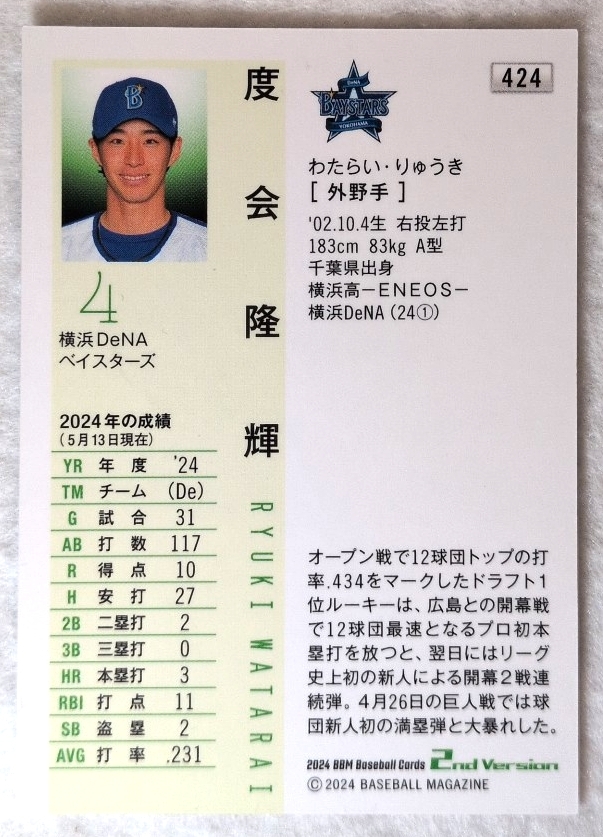 424
度会隆輝
RYUKI WATARAI
B
DeNA
BAYSTARS
YOKOHAMA
わたらい・りゅうき
[ 外野手 ]
'02.10.4生 右投左打
183cm 83kg A型
千葉県出身
横浜高－ENEOS－
横浜DeNA（24①）
4
横浜DeNA
ベイスターズ
2024年の成績
（5月13日現在）
YR 年度 '24
TM チーム (De)
G 試合 31
AB 打数 117
R 得点 10
H 安打 27
2B 二塁打 2
3B 三塁打 0
HR 本塁打 3
RBI 打点 11
SB 盗塁 2
AVG 打率 .231
オープン戦で12球団トップの打
率.434をマークしたドラフト1
位ルーキーは、広島との開幕戦
で12球団最速となるプロ初本
塁打を放つと、翌日にはリーグ
史上初の新人による開幕2戦連
続弾。4月26日の巨人戦では球
団新人初の満塁弾と大暴れした。
2024 BBM Baseball Cards 2nd Version
Ⓒ2024 BASEBALL MAGAZINE